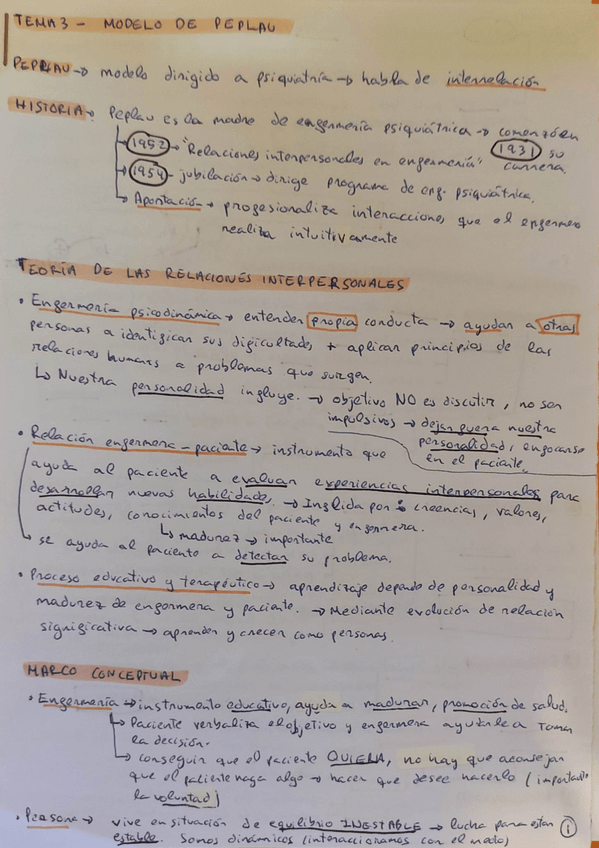 TEMA 3 - MODELO DE PEPLAU
PEPLAU → modelo dirigido a psiquiatría → habla de interrelación
HISTORIA → Peplau es la madre de enfermería psiquiátrica → comenzó en 1931 su carrera
→ 1952 → "Relaciones interpersonales en enfermería"
→ 1954 - jubilación → dirige programa de enf. psiquiátrica.
→ Aportación → profesionaliza interacciones que el enfermero
realiza intuitivamente
TEORÍA DE LAS RELACIONES INTERPERSONALES
• Enfermería psicodinámica → entender propia conducta → ayudar a otras
personas a identificar sus dificultades + aplicar principios de las
relaciones humans a problemas que surgen.
↳ Nuestra personalidad influye. → objetivo NO es discutir, no ser
impulsivos → dejar fuera nuestra
personalidad, enfocarse
en el paciente
• Relación enfermera-paciente → instrumento que
ayuda al paciente a evaluar experiencias interpersonales para
desarrollar nuevas habilidades. → Influida por: creencias, valores,
actitudes, conocimientos del paciente y enfermera.
↳ madurez → importante
↳ se ayuda al paciente a detectar su problema.
• Proceso educativo y terapéutico → aprendizaje depende de personalidad y
madurez de enfermera y paciente. → Mediante evolución de relación
significativa → aprender y crecer como personas.
MARCO CONCEPTUAL
• Enfermería → instrumento educativo, ayuda a madurar, promoción de salud.
↳ Paciente verbaliza el objetivo y enfermera ayuda a tomar
la decisión.
↳ conseguir que el paciente QUIERA, no hay que aconsejar
que el paciente haga algo → hacer que desee hacerlo (importante
la voluntad)
• Persona → vive en situación de equilibrio INESTABLE → lucha para estar
estable. Somos dinámicos (interaccionamos con el medio)
1